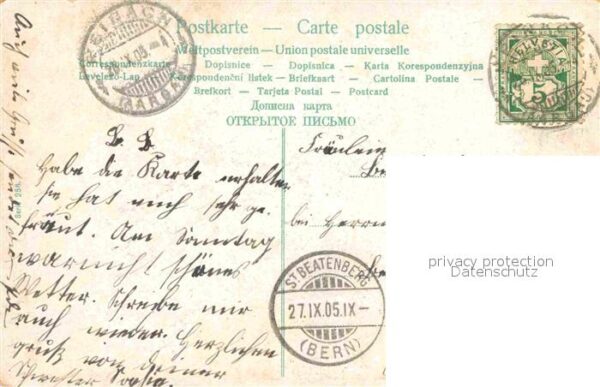 Postkarte — Carte postale
Weltpostverein — Union postale universelle
Correspondenzkarte — Dopisnice — Dopisnica — Karta Korespondencyjna
Levelező-Lap — Korespondenční listek — Briefkaart — Cartolina Postale —
Brefkort — Tarjeta Postal — Postcard
Дописна карта
ОТКРЫТОЕ ПИСЬМО
REINACH
IX.05
(AARGAU)
HELVETIA
5
L. L.
Habe die Karte erhalten
sie hat mich sehr ge-
fräut. Am Sonntag
war nicht schönes
Wetter. Schreibe mir
auch wieder. Herzlichen
gruß von deiner
Schwester Sophie.
Serie 258.
Fräulein
bei Herrn
ST BEATENBERG
27.IX.05.IX—
(BERN)
privacy protection
Datenschutz